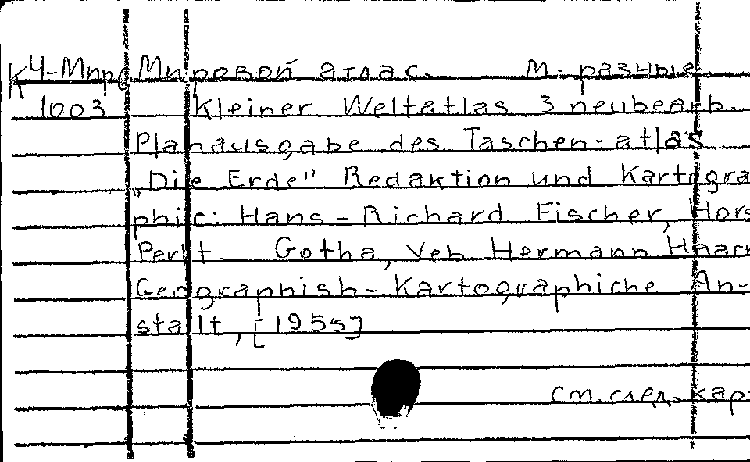 К4-Мир Мировой атлас. М. разные
1003 Kleiner Weltatlas 3 neubearb.
Planausgabe des Taschen-atlas
„Die Erde" Redaktion und Kartogra
phie: Hans-Richard Fischer, Hors
Gotha, Veb Hermann Haack
Geographish-Kartographiche An-
stallt, [1955]
см. след. кар